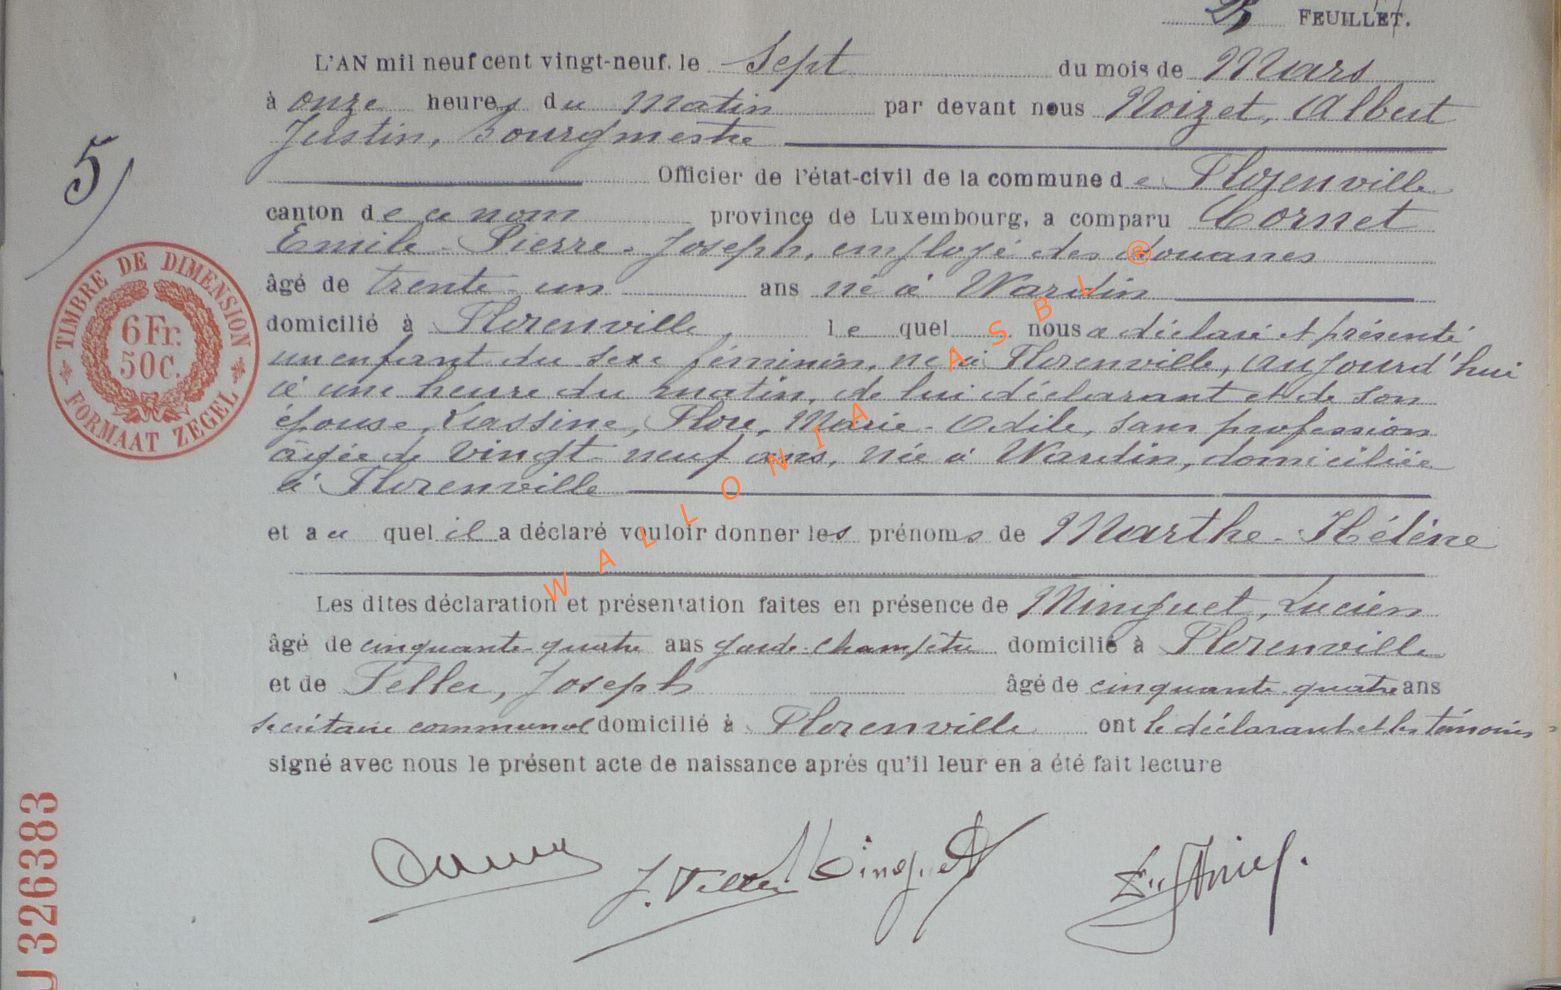 FEUILLET.
L'AN mil neuf cent vingt-neuf. le Sept du mois de Mars
à onze heures du Matin par devant nous Noizet, Albert
Justin, Bourgmestre
5)
Officier de l'état-civil de la commune de Florenville
canton de ce nom province de Luxembourg, a comparu Cornet
Emile-Pierre-Joseph, employé des douanes
âgé de trente-un ans né à Wardin
domicilié à Florenville, le quel nous a déclaré et présenté
un enfant du sexe féminin, né à Florenville, aujourd'hui
à une heure du matin, de lui déclarant et de son
épouse, Lassine, Flore, Marie-Odile, sans profession
âgée de vingt-neuf ans, née à Wardin, domiciliée
à Florenville
et au quel il a déclaré vouloir donner les prénoms de Marthe-Hélène
Les dites déclaration et présentation faites en présence de Minguet, Lucien
âgé de cinquante-quatre ans garde-champêtre domicilié à Florenville
et de Feller, Joseph âgé de cinquante-quatre ans
secrétaire communal domicilié à Florenville ont le déclarant et les témoins
signé avec nous le présent acte de naissance après qu'il leur en a été fait lecture
J. Feller Minguet
TIMBRE DE DIMENSION
6Fr.
50c.
FORMAAT ZEGEL
U 326383
WALLONIA ASBL ®